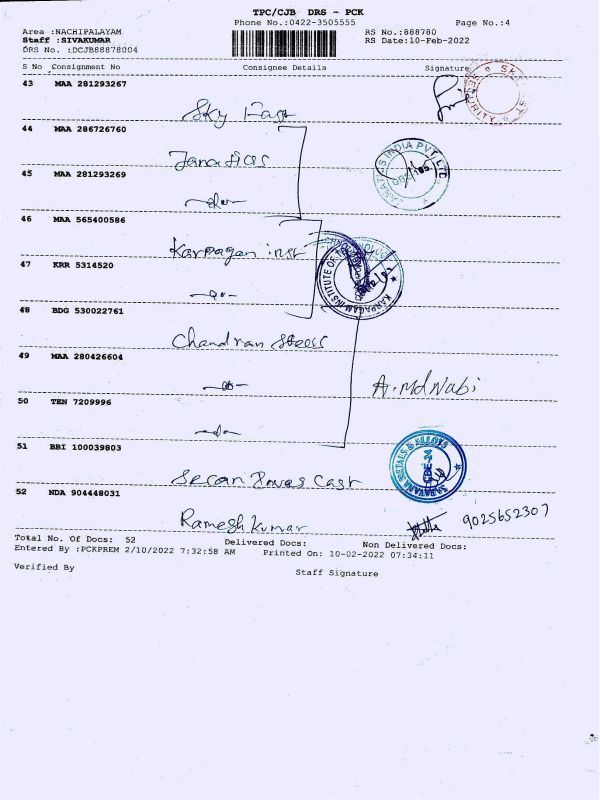 TPC/CJB DRS - PCK
Phone No.:0422-3505555 Page No.:4
Area :NACHIPALAYAM RS No.:888780
Staff :SIVAKUMAR RS Date:10-Feb-2022
DRS No. :DCJB88878004
S No Consignment No Consignee Details Signature
43 MAA 281293267
Sky Fast
44 MAA 286726760
Janatics
45 MAA 281293269
46 MAA 565400586
Karpagam inst
47 KRR 5314520
48 BDG 530022761
Chandran Steels
49 MAA 280426604
A. Md Nabi
50 TEN 7209996
51 BBI 100039803
Cast
52 NDA 904448031
Rameshkumar 9025652307
Total No. Of Docs: 52 Delivered Docs: Non Delivered Docs:
Entered By :PCKPREM 2/10/2022 7:32:58 AM Printed On: 10-02-2022 07:34:11
Verified By Staff Signature
SECURITY
JANATICS INDIA PVT. LTD.
KARPAGAM INSTITUTE OF
SARAVANA METALS & ALLOYS